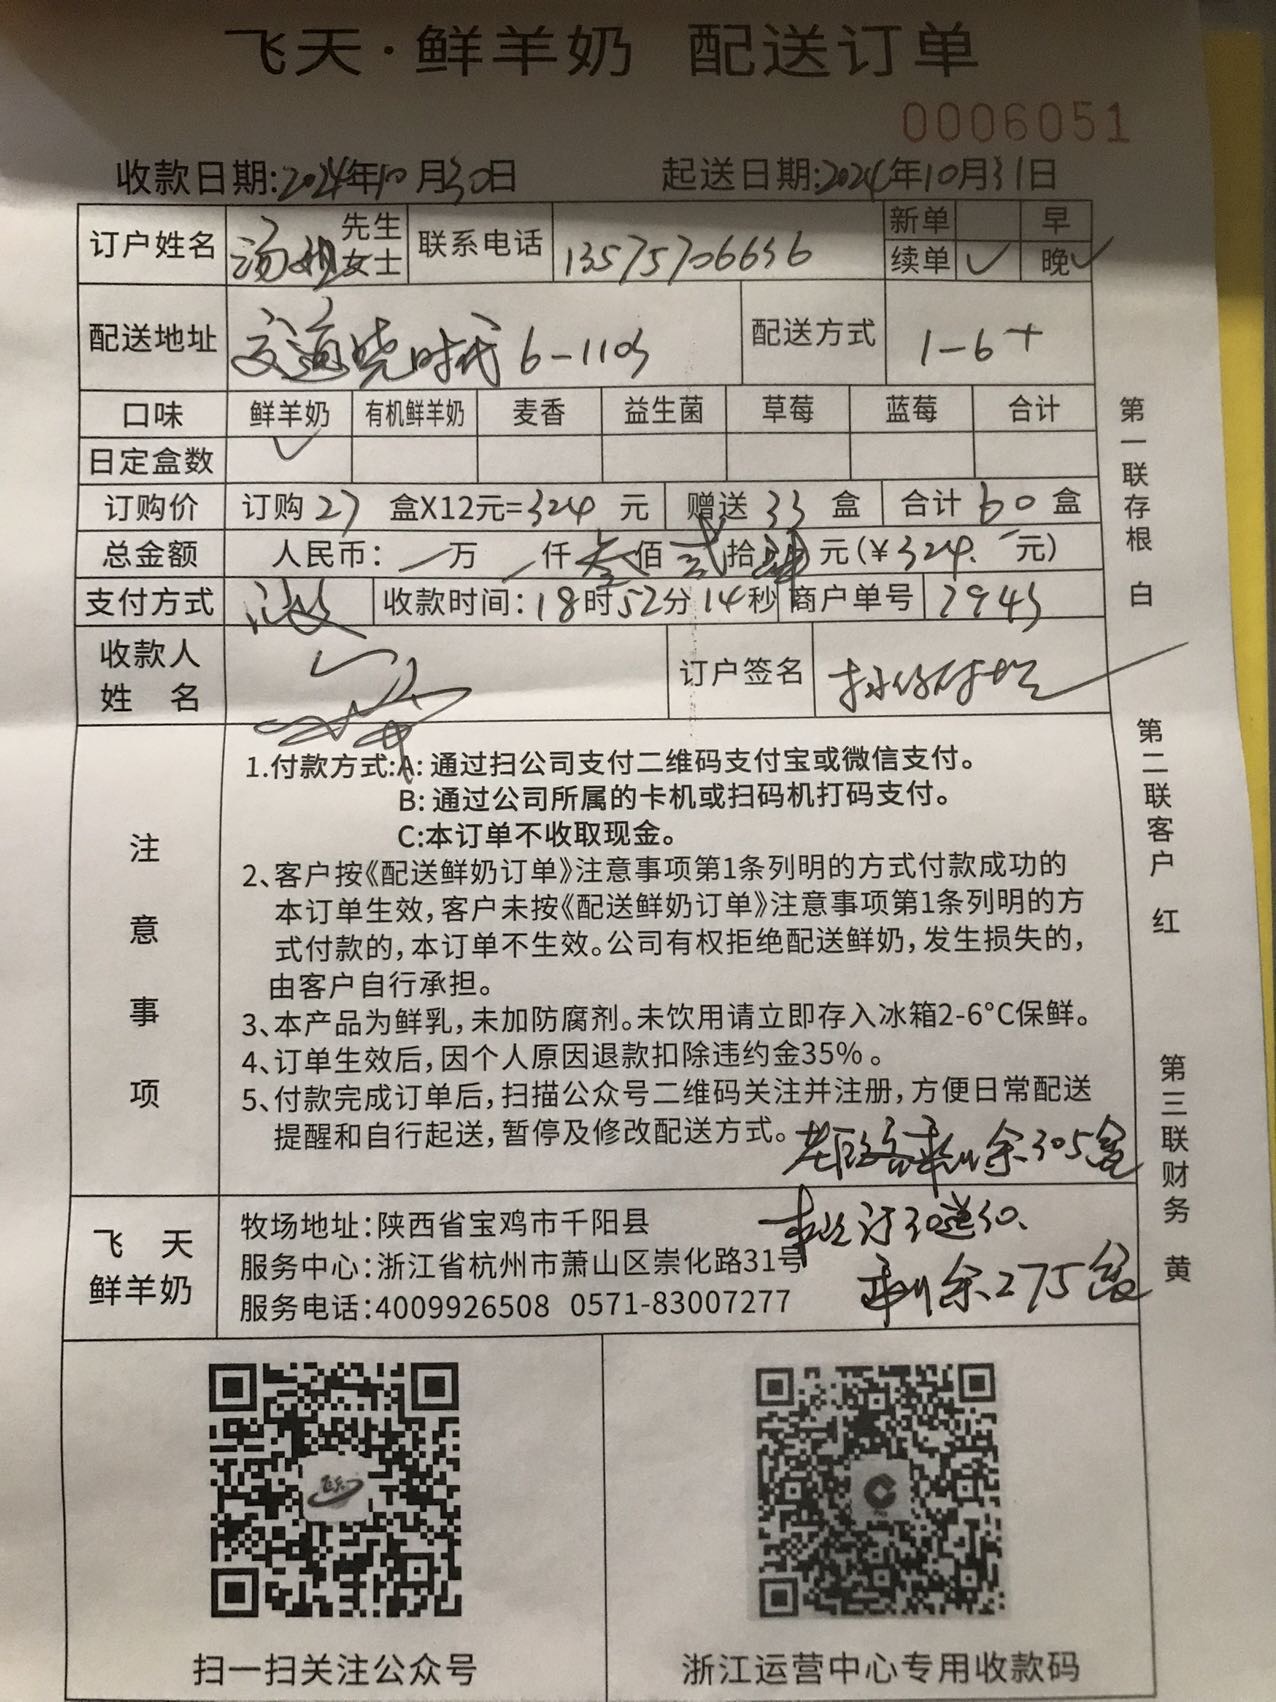 飞天·鲜羊奶 配送订单
0006051
收款日期:2024年10月30日 起送日期:2024年10月31日
订户姓名 汤姐 先生 女士 联系电话 13575706636 新单 早
续单 ✓ 晚 ✓
配送地址 交道晓时代 6-1103 配送方式 1-6+
口味 鲜羊奶 有机鲜羊奶 麦香 益生菌 草莓 蓝莓 合计
日定盒数 ✓
订购价 订购 27 盒X12元=324 元 赠送 33 盒 合计 60 盒
总金额 人民币: 万 仟 叁佰 贰拾 肆元(¥324.-元)
支付方式 收款时间:18时52分14秒 商户单号 7943
收款人
姓 名 订户签名
注意事项
1.付款方式:A: 通过扫公司支付二维码支付宝或微信支付。
B: 通过公司所属的卡机或扫码机打码支付。
C:本订单不收取现金。
2、客户按《配送鲜奶订单》注意事项第1条列明的方式付款成功的
本订单生效,客户未按《配送鲜奶订单》注意事项第1条列明的方
式付款的,本订单不生效。公司有权拒绝配送鲜奶,发生损失的,
由客户自行承担。
3、本产品为鲜乳,未加防腐剂。未饮用请立即存入冰箱2-6°C保鲜。
4、订单生效后,因个人原因退款扣除违约金35%。
5、付款完成订单后,扫描公众号二维码关注并注册,方便日常配送
提醒和自行起送,暂停及修改配送方式。
剩余305盒
订30送30、
剩余275盒
飞 天
鲜羊奶
牧场地址:陕西省宝鸡市千阳县
服务中心:浙江省杭州市萧山区崇化路31号
服务电话:4009926508 0571-83007277
扫一扫关注公众号 浙江运营中心专用收款码
第一联存根 白
第二联客户 红
第三联财务 黄